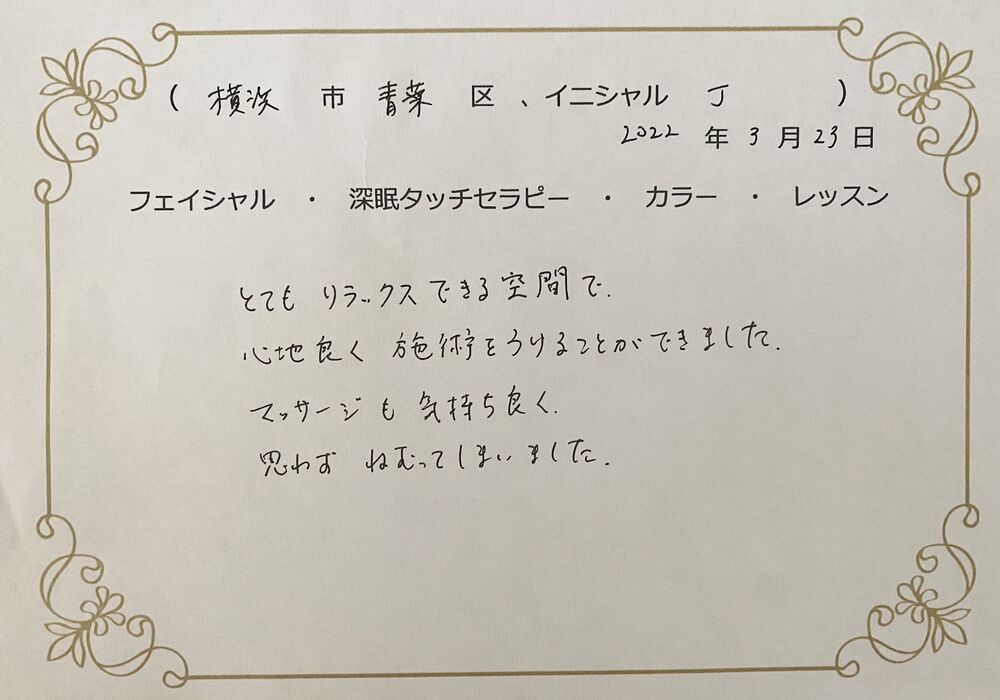 （ 横浜 市 青葉 区 、イニシャル J ）
2022 年 3 月 23 日
フェイシャル ・ 深眠タッチセラピー ・ カラー ・ レッスン
とても リラックスできる空間で、
心地良く 施術をうけることができました。
マッサージも 気持ち良く、
思わず ねむってしまいました。